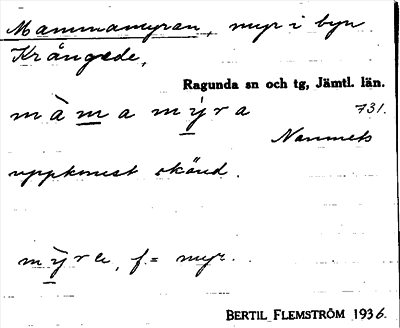 Mammamyran, myr i byn
Krångede,
Ragunda sn och tg, Jämtl. län.
màmamy̌ra 731.
Namnets
uppkomst okänd.
my̌ra, f. = myr.
BERTIL FLEMSTRÖM 1936.